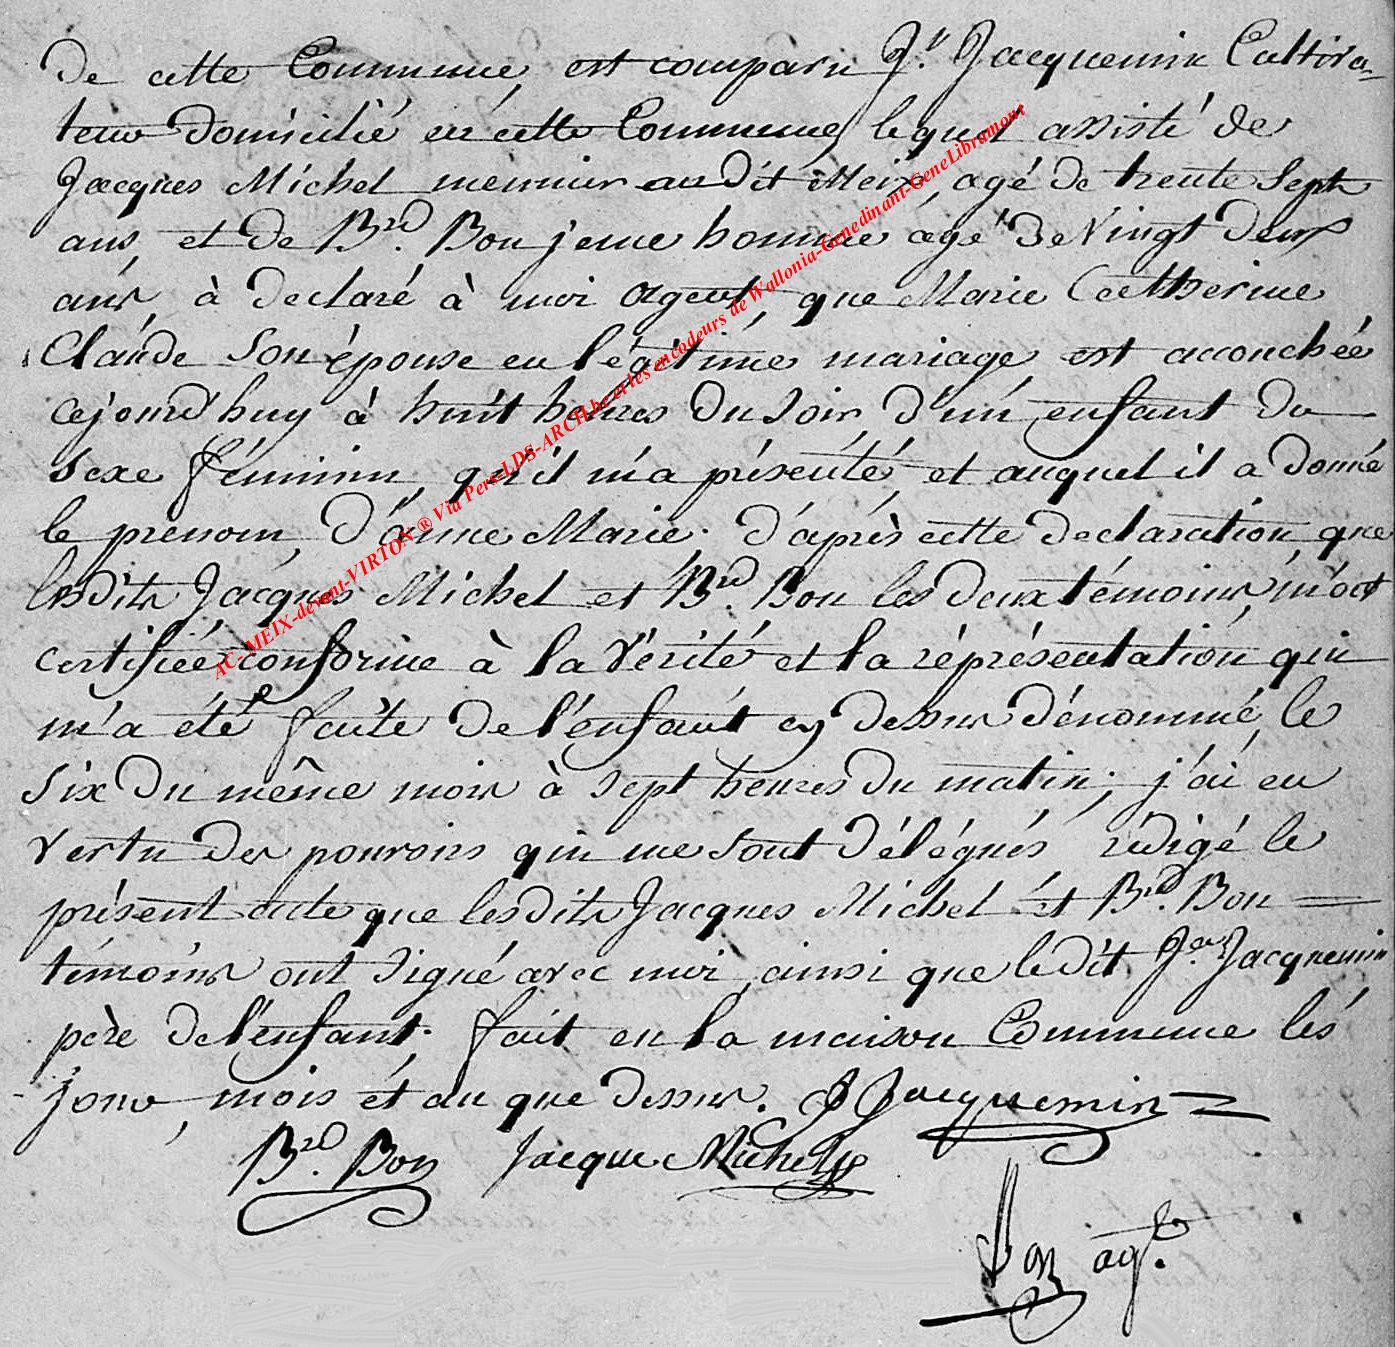 de cette Commune, est comparu Jn. Jacquemin Cultiva-
teur domicilié en cette Commune, lequel assisté de
Jacques Michel meunier audit Meix, agé de trente sept
ans, et de Brd. Bon jeune homme agé de Vingt deux
ans, à declaré à moi agent, que Marie Catherine
Claude Son épouse en légitime mariage est accouchée
cejourd'huy à huit heures du soir, d'un enfant du
sexe féminin, qu'il m'a présenté, et auquel il a donné
le prenom, d'anne Marie. d'après cette declaration que
lesdits Jacques Michel et Brd. Bon les deux témoins, m'ont
certifiée conforme à la Vérité et la réprésentation qui
m'a été faite de l'enfant cy dessus dénommé, le
six du même mois à sept heures du matin; j'ai en
vertu des pouvoirs qui me sont délégués rédigé le
présent acte que lesdits Jacques Michel et Brd. Bon =
témoins ont signé avec moi, ainsi que ledit Jean Jacquemin
père de l'enfant. fait en la maison Commune les
jour, mois et an que dessus. J Jacquemin
Brd. Bon Jacque Michel
Bon agt.
AC- MEIX-devant-VIRTON ® Via Pers-LDS-ARCH.be et les encodeurs de Wallonia-Genedinant-GeneLibramont